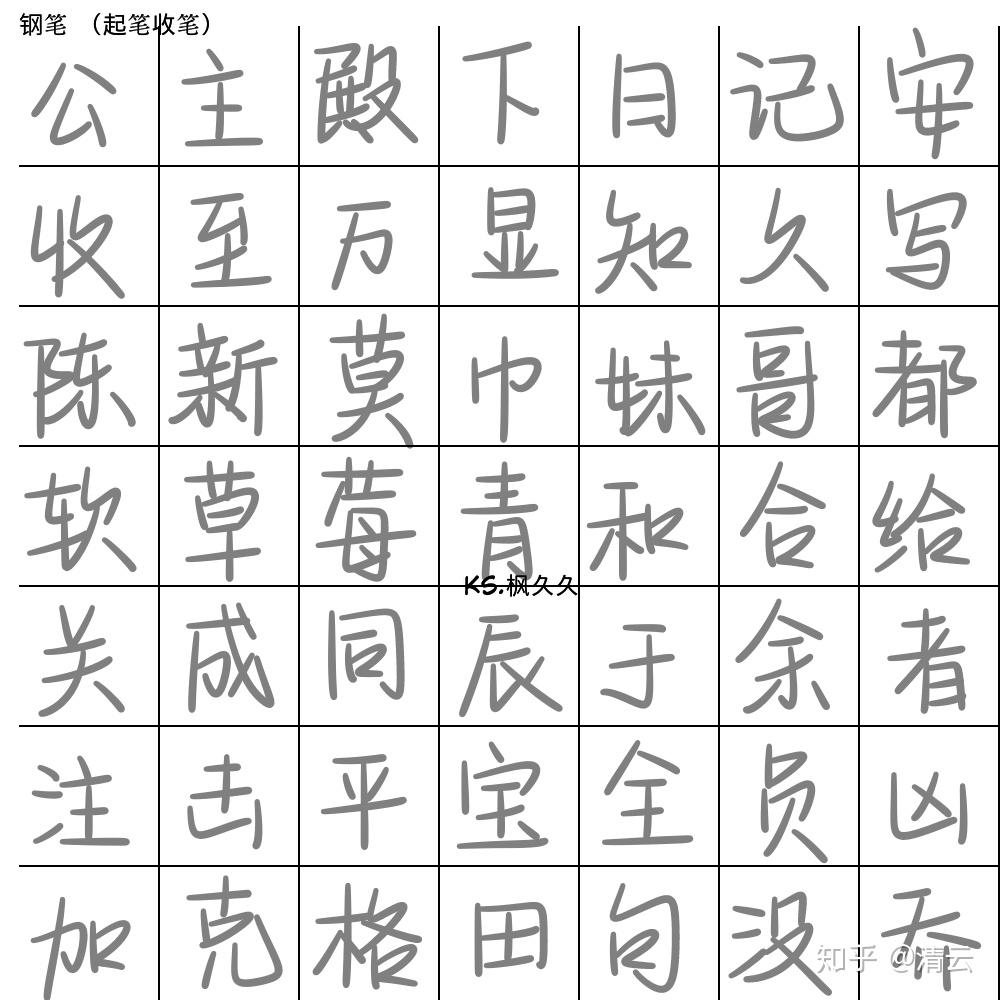 钢笔 （起笔收笔）
公主殿下日记安
收至万显知久写
陈新莫巾妹哥都
软草莓青和合给
KS.枫久久
关成同辰于余者
注击平宝全员凶
加克格田句没乔
知乎 @清云